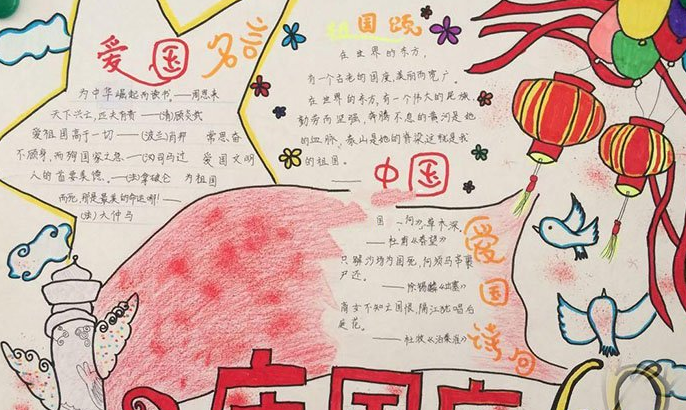 爱国名言
为中华崛起而读书。——周恩来
天下兴亡，匹夫有责——(清)顾炎武
爱祖国高于一切——(波兰)肖邦 常思奋
不顾身，而殉国家之急。——(汉)司马迁 爱国文明
人的首要美德。——(法)拿破仑 为祖国
而死，那是最美的命运啊！——
(法)大仲马
祖国颂
在世界的东方，
有一个古老的国度，美丽而宽广。
在世界的东方，有一个伟大的民族，
勤劳而坚强，奔腾不息的黄河是她
的血脉，泰山是她的脊梁这就是我
的祖国。
——中国
爱国诗句
国 河 草木深，
——杜甫《春望》
只解沙场为国死，何须马革裹
尸还。
——徐锡麟《出塞》
商女不知亡国恨，隔江犹唱后
庭花。
——杜牧《泊秦淮》
国庆